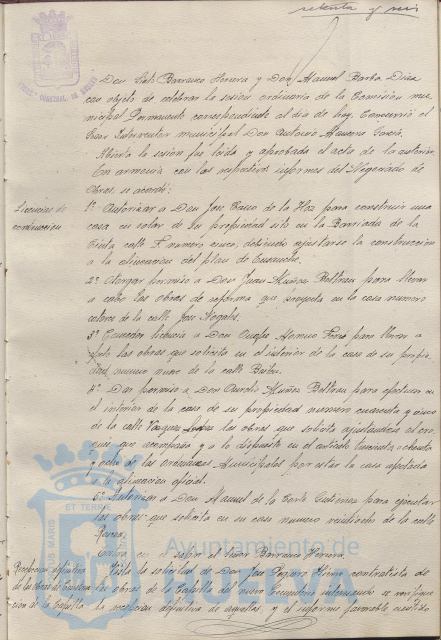 setenta y seis
Don Luis Barranco Herrera y Don Manuel Barba Díaz
con objeto de celebrar la sesión ordinaria de la Comisión mu-
nicipal Permanente correspondiente al día de hoy. Concurrió el
Señor Interventor municipal Don Antonio Moreno García
Abierta la sesión fué leída y aprobada el acta de la anterior.
En armonía con los respectivos informes del Negociado de
Obras, se acordó:
Licencias de
construcción
1º Autorizar a Don José de la Hoz para construir una
casa en solar de su propiedad sito en la Barriada de la
calle F. número cinco, debiendo ajustarse la construcción
a la alineación del plan de Ensanche.
2º Otorgar permiso a Don Juan Muñoz Beltrán para llevar
a cabo las obras de reforma que proyecta en la casa número
catorce de la calle José Nogales.
3º Conceder licencia a Don Onofre para llevar a
las obras que solicita en el interior de la casa de su propie-
dad, número nueve de la calle
4º Dar permiso a Don Aurelio Muñoz Beltrán para efectuar en
el interior de la casa de su propiedad número cuarenta y cinco
de la calle Vázquez las obras que solicita ajustándose al cro-
quis que acompaña y a lo dispuesto en el artículo ochenta
y ocho de las Ordenanzas Municipales por estar la casa afectada
a la alineación oficial.
Autorizar a Don Manuel de la Corte Gutiérrez para ejecutar
las obras que solicita en su casa número veintiocho de la calle
Rascón.
Entra en el salón el Señor Barranco Herrera.
Recepción definitiva
de las obras de
ción de la
Vista la solicitud de Don José contratista de
las obras de del muro
la recepción definitiva de aquellas, y el informe favorable emitido
Ayuntamiento de
HUELVA
ET TERRE
MARIS